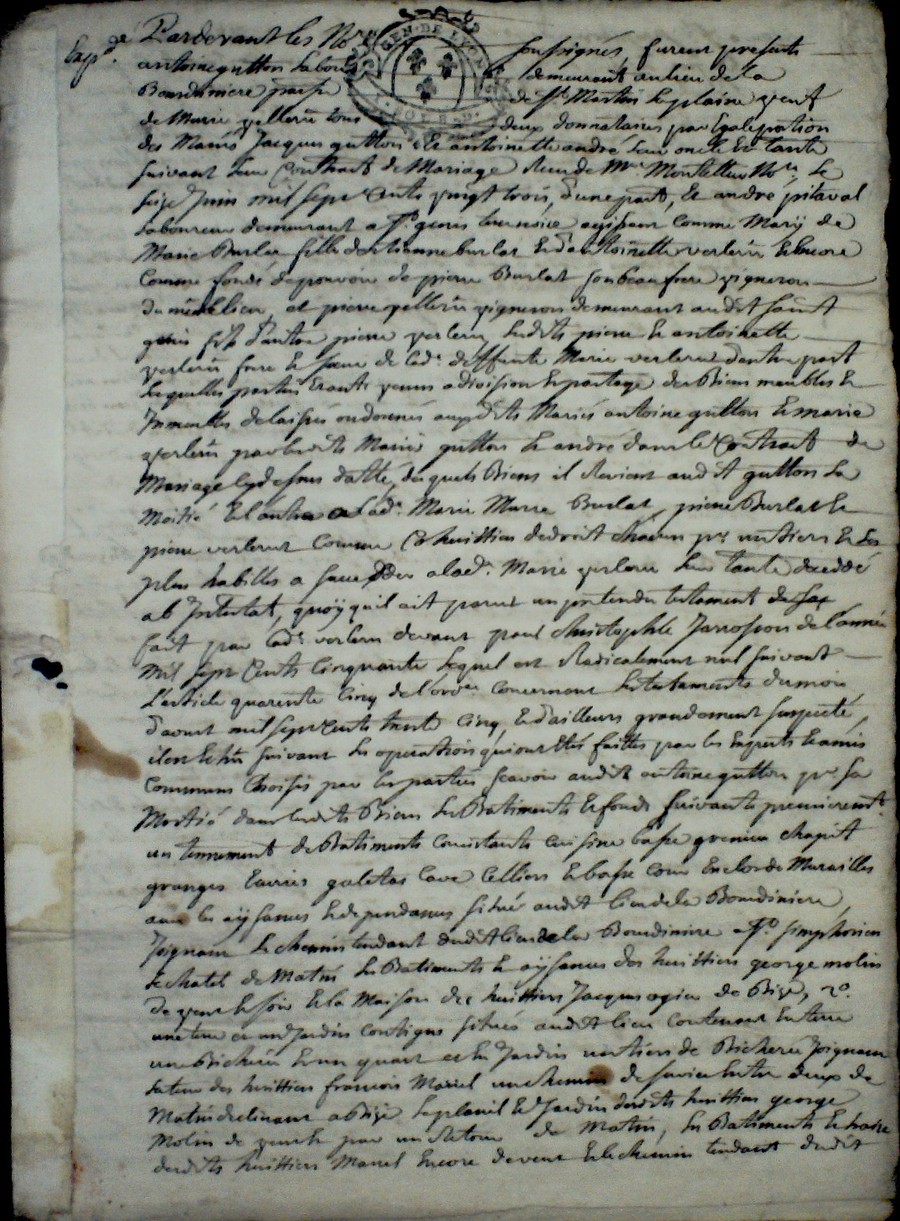 Exp. de
Pardevant les No.res soussignés furent presents
GEN. DE LYON
antoine gutton laboureur demeurant au lieu de la
Bourdiniere parse de St. Martin la plaine veuf
de Marie verlerin tous deux donnataires par Egale portion
des Mariés Jacques gutton et antoinette andré leur oncle Et tante
suivant leur Contract de Mariage Reçu de Mre. Montellier No.re le
seize Juin mil sept Cents vingt trois, d'une part, Et andré pitaval
laboureur demeurant a St. genis terrenoire agissant comme Mary de
Marie Burlat fille d'Etienne burlat Et d'antoinette verlerin Et Encore
Comme fondé de pouvoir de pierre Burlat son beaufrere vigneron
du même lieu, et pierre verlerin vigneron demeurant audit saint
genis fils d'autre pierre verlerin, lesdits pierre Et antoinette
verlerin frere Et sœur de lad. deffunte Marie verlerin d'autre part
Lesquelles parties Etants venus a division Et partage des Biens meubles Et
Immeubles delaissés ou donnés auxdits Mariés antoine gutton Et marie
verlerin par lesdits Mariés gutton Et andré dans le Contract de
Mariage cydessus datté, desquels Biens il Revient audit gutton La
Moitié Et l'autre a lad. Marie Burlat, pierre Burlat Et
pierre verlerin Comme Cohéritiers de droit chacun pr. un tiers Et les
plus habilles a succeder a lad. Marie verlerin leur tante decedée
ab Intestat, quoÿqu'il ait parut un pretendu testament
fait par lad. verlerin devant Christophle Jarrosson de l'année
mil sept Cents Cinquante lequel est Radicalement nul suivant
L'article quarente Cinq de l'ordce. concernant les testaments du mois
d'aoust mil sept Cents trente Cinq, Et d'ailleurs grandement suspecté,
suivant les operations qui ont Etés faittes par les Experts Et amis
Communs Choisis par les parties scavoir audit antoine gutton pr. sa
Moitié dans lesdits Biens les Batiments Et fonds suivants premierement
un tennement de Batiments Consistants cuisine basse grenier chapit
granges Ecuries galetas Cave Cellier Et basse Cour Enclos de Murailles
avec les aÿsances Et dependances situé audit lieu de la Bourdiniere,
Joignant le chemin tendant dudit lieu de la Bourdiniere a St. simphorien
le chatel de Matin les Batiments Et aÿsances des heritiers george molin
de vent Et soir Et la Maison des heritiers Jacques ogier de Bize, 2o.
une terre et un Jardin Contigus situés audit lieu Contenant En terre
une Bicherée Et un quart et En Jardin un tiers de Bicherée Joignant
la terre des heritiers francois Mariel un chemin de service Entre deux de
Matin declinant a Bize le planil Et Jardin desdits heritiers george
Molin de vent Et par un Retour de Matin, les Batiments Et
desdits heritiers Mariel Encore de vent Et le chemin tendant dudit